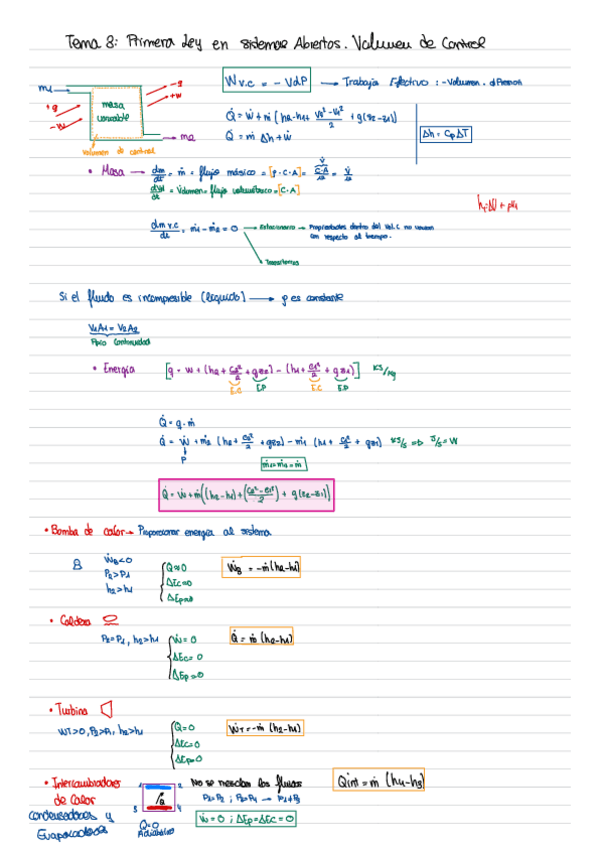 Tema 8: Primera Ley en sistemas Abiertos. Volumen de Control
m1
+q
-w
masa variable
-q
+w
m2
volumen de control
Wv.c = -VdP → Trabajo Efectivo: -Volumen. dPresion
Q̇ = Ẇ + ṁ (h2-h1+ (V2²-V1²)/2 + g(z2-z1))
Q̇ = ṁ Δh + Ẇ
Δh = Cp ΔT
• Masa → dm/dt = ṁ = flujo másico = [ρ·C·A] =
= Volumen = flujo volumétrico = [C·A]
dm v.c/dt = ṁ1 - ṁ2 = 0 → Estacionario → Propiedades dentro del Vol.C no varian
con respecto al tiempo.
Transitorios
Si el fluido es incompresible (líquido) → ρ es constante
V1A1 = V2A2
continuidad
• Energía [q = w + (h2 + C2²/2 + gz2) - (h1 + C1²/2 + gz1)] KJ/Kg
E.C E.P E.C E.P
Q̇ = q·ṁ
Q̇ = Ẇ + ṁ2 (h2 + C2²/2 + gz2) - ṁ1 (h1 + C1²/2 + gz1) KJ/s ⇒ J/s = W
P
ṁ1=ṁ2=ṁ
Q̇ = Ẇ + ṁ((h2-h1) + (C2²-C1²/2) + g(z2-z1))
• Bomba de calor → Proporcionar energía al sistema
ẆB<0
P2>P1
h2>h1
Q≈0
ΔEc=0
ΔEp=0
ẆB = -ṁ(h2-h1)
• Caldera
P2=P1, h2>h1
Ẇ=0
ΔEc=0
ΔEp=0
Q̇ = ṁ(h2-h1)
• Turbina
WT>0, P2>P1, h2>h1
Q=0
ΔEc=0
ΔEp=0
ẆT = -ṁ(h2-h1)
• Intercambiadores
de Calor
condensadores y
Evaporadores
1 2
Q
3 4
Q=0
Adiabático
No se mezclan los fluidos
P1=P2 ; P3=P4 → P1≠P3
Ẇ=0 ; ΔEp=ΔEc=0
Q̇int = ṁ(h4-h3)